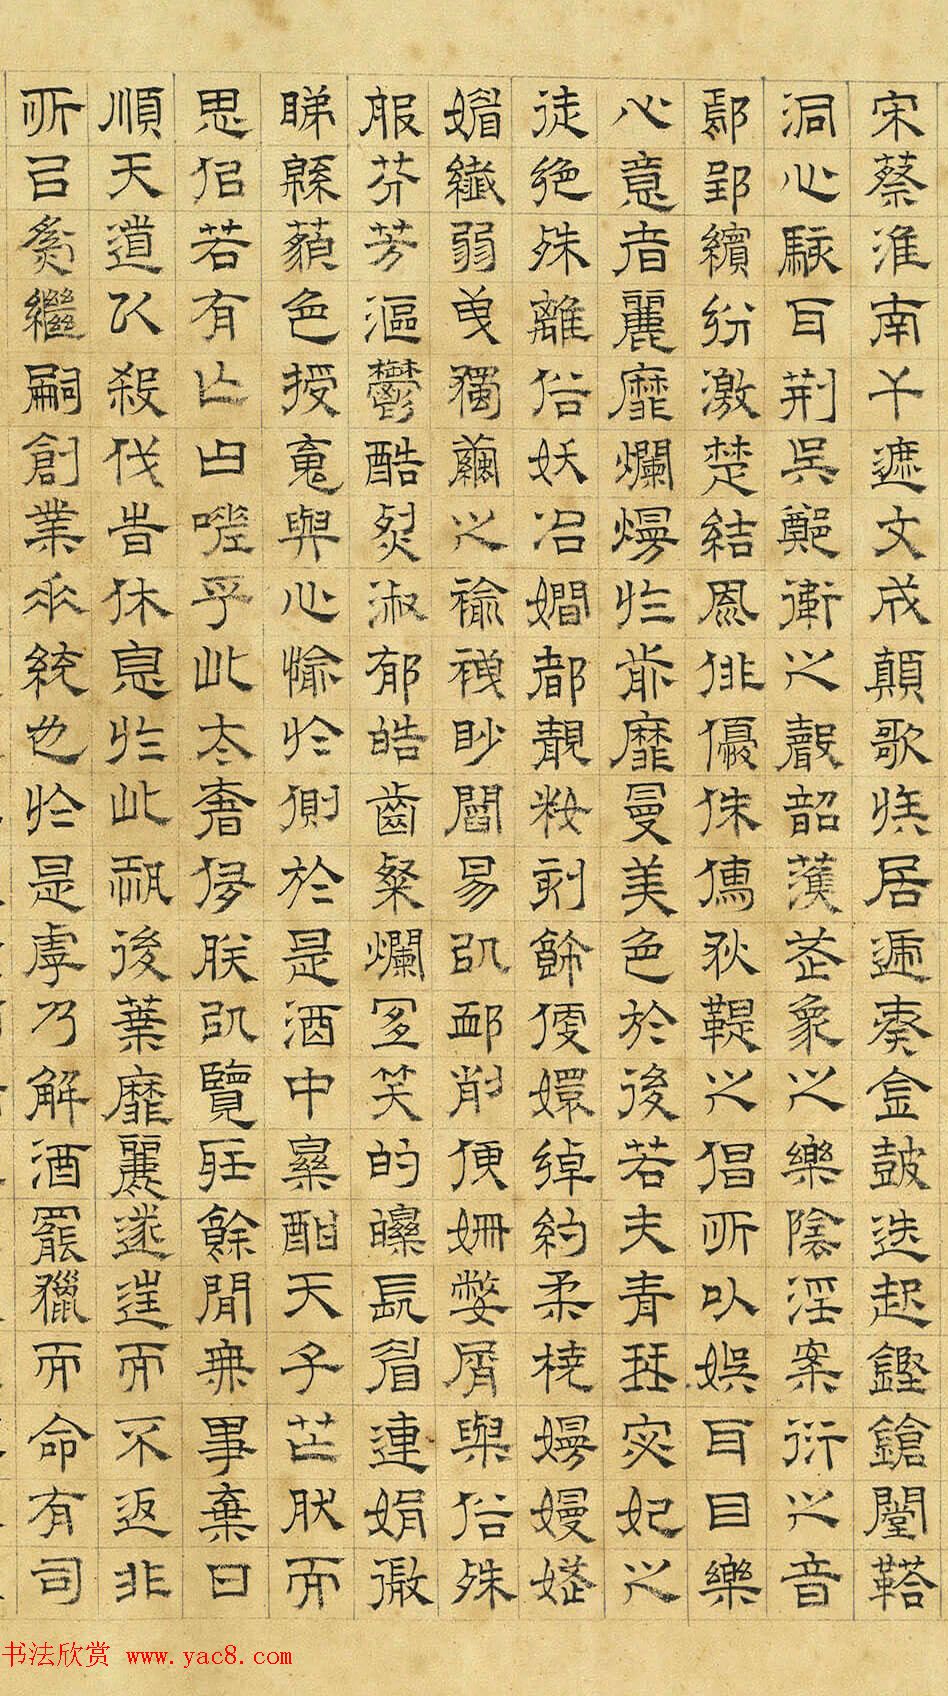 宋蔡淮南干遮文成顛歌族居遞奏金鼓迭起鏗鎗闛鞈
洞心駭耳荊吳鄭衛之聲韶濩武象之樂陰淫案衍之音
鄢郢繽紛激楚結風俳優侏儒狄鞮之倡所以娛耳目樂
心意者麗靡爛熳於前靡曼美色於後若夫青琴宓妃之
徒絕殊離俗妖冶嫺都靚粧刻飾便嬛綽約柔橈嫚嫚嫵
媚纖弱曳獨繭之褕袣眇閻易以卹削便姍嫳屑與俗殊
服芬芳漚鬱酷烈淑郁皓齒粲爛宜笑的皪長眉連娟微
睇緜藐色授魂與心愉於側於是酒中樂酣天子芒然而
思佀若有亡曰嗟乎此太奢侈朕以覽聽餘閒無事棄日
順天道以殺伐時休息於此恐後葉靡麗遂往而不返非
所以為繼嗣創業垂統也於是虖乃解酒罷獵而命有司
书法欣赏 www.yac8.com